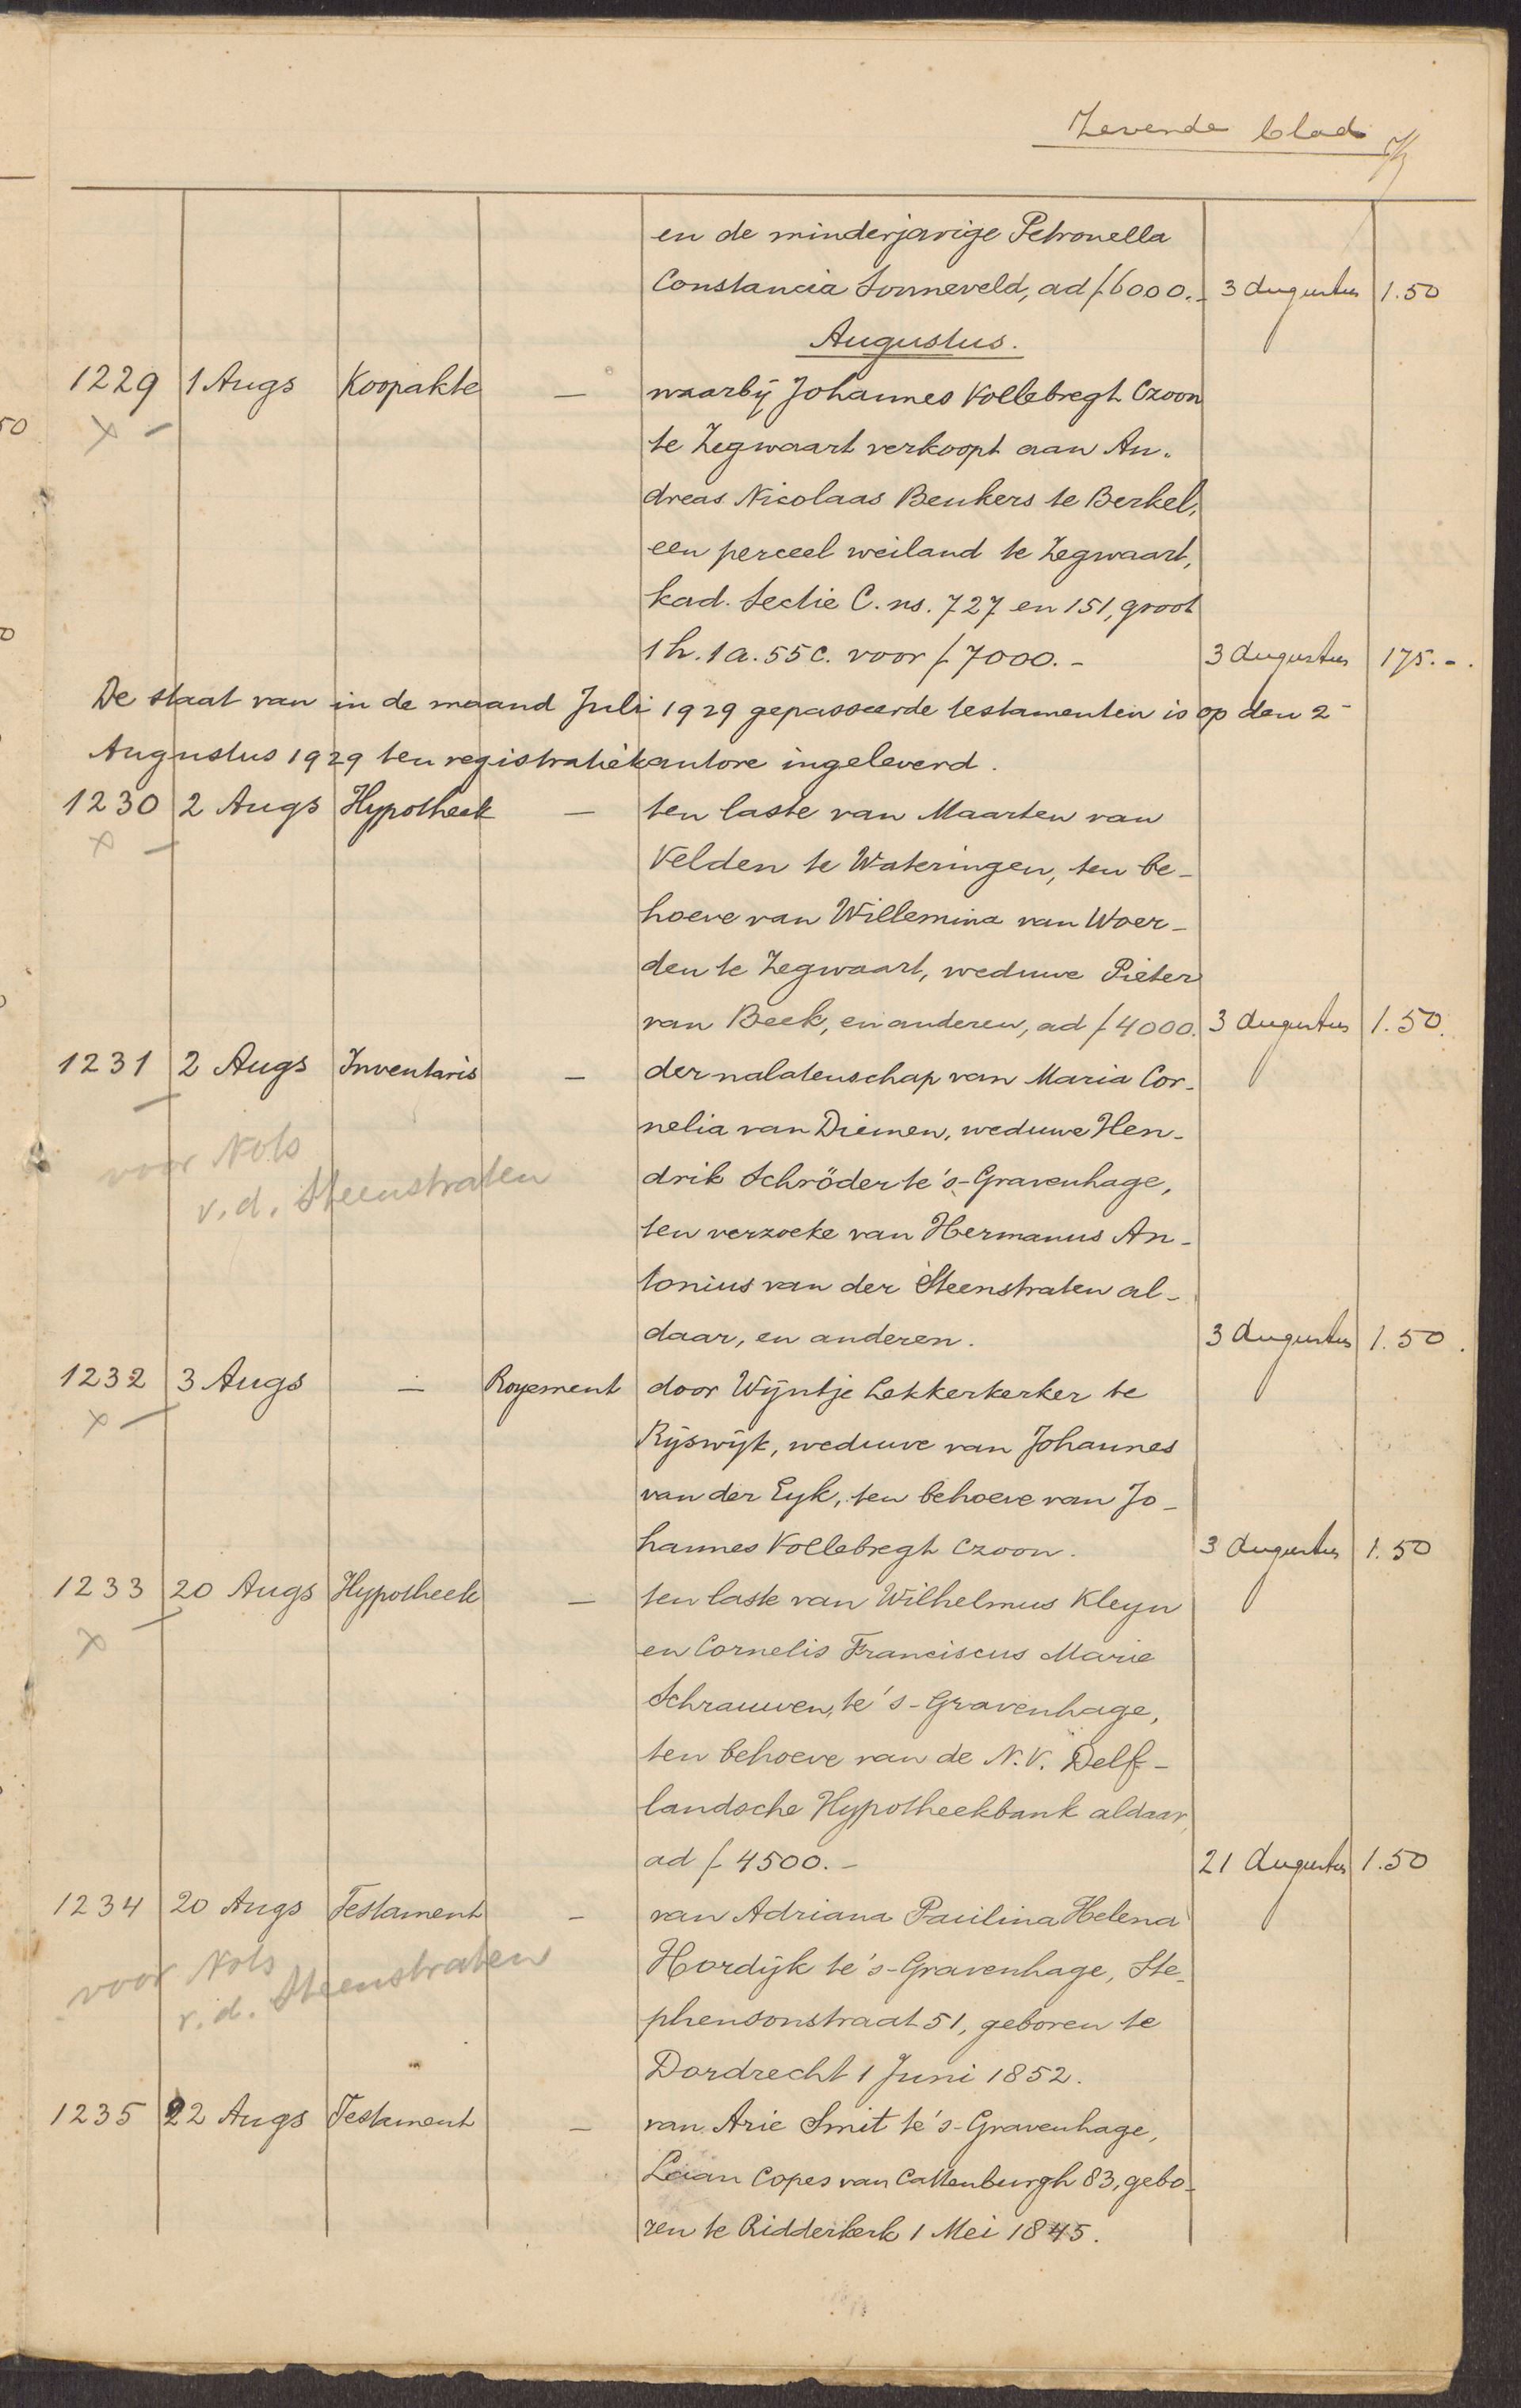 Zevende blad
en de minderjarige Petronella
Constancia Sonneveld, ad f 6000.- 3 Augustus 1.50
Augustus.
1229 1 Augs Koopakte — waarbij Johannes Vollebregt Czoon
te Zegwaart verkoopt aan An-
dreas Nicolaas Beukers te Berkel,
een perceel weiland te Zegwaart,
kad. Sectie C. ns. 727 en 151, groot
1 h. 1 a. 55 c. voor f 7000.- 3 Augustus 175.-.
De staat van in de maand Juli 1929 gepasseerde testamenten is op den 2
Augustus 1929 ten registratiekantore ingeleverd.
1230 2 Augs Hypotheek — ten laste van Maarten van
Velden te Wateringen, ten be-
hoeve van Willemina van Woer-
den te Zegwaart, weduwe Pieter
van Beek, en anderen, ad f 4000. 3 Augustus 1.50.
1231 2 Augs Inventaris — der nalatenschap van Maria Cor-
nelia van Diemen, weduwe Hen-
voor Nots
drik Schröder te 's-Gravenhage,
v.d. Steenstraten
ten verzoeke van Hermanus An-
tonius van der Steenstraten al-
daar, en anderen. 3 Augustus 1.50.
1232 3 Augs — Royement door Wijntje Lekkerkerker te
Rijswijk, weduwe van Johannes
van der Eyk, ten behoeve van Jo-
hannes Vollebregt Czoon. 3 Augustus 1.50
1233 20 Augs Hypotheek — ten laste van Wilhelmus Kleyn
en Cornelis Franciscus Marie
Schrauwen, te 's-Gravenhage,
ten behoeve van de N.V. Delf-
landsche Hypotheekbank aldaar,
ad f 4500.- 21 Augustus 1.50
1234 20 Augs Testament — van Adriana Paulina Helena
voor Nots
Hordijk te 's-Gravenhage, Ste-
v.d. Steenstraten
phensonstraat 51, geboren te
Dordrecht 1 Juni 1852.
1235 22 Augs Testament — van Arie Smit te 's-Gravenhage,
Laan Copes van Cattenburgh 83, gebo-
ren te Ridderkerk 1 Mei 1845.